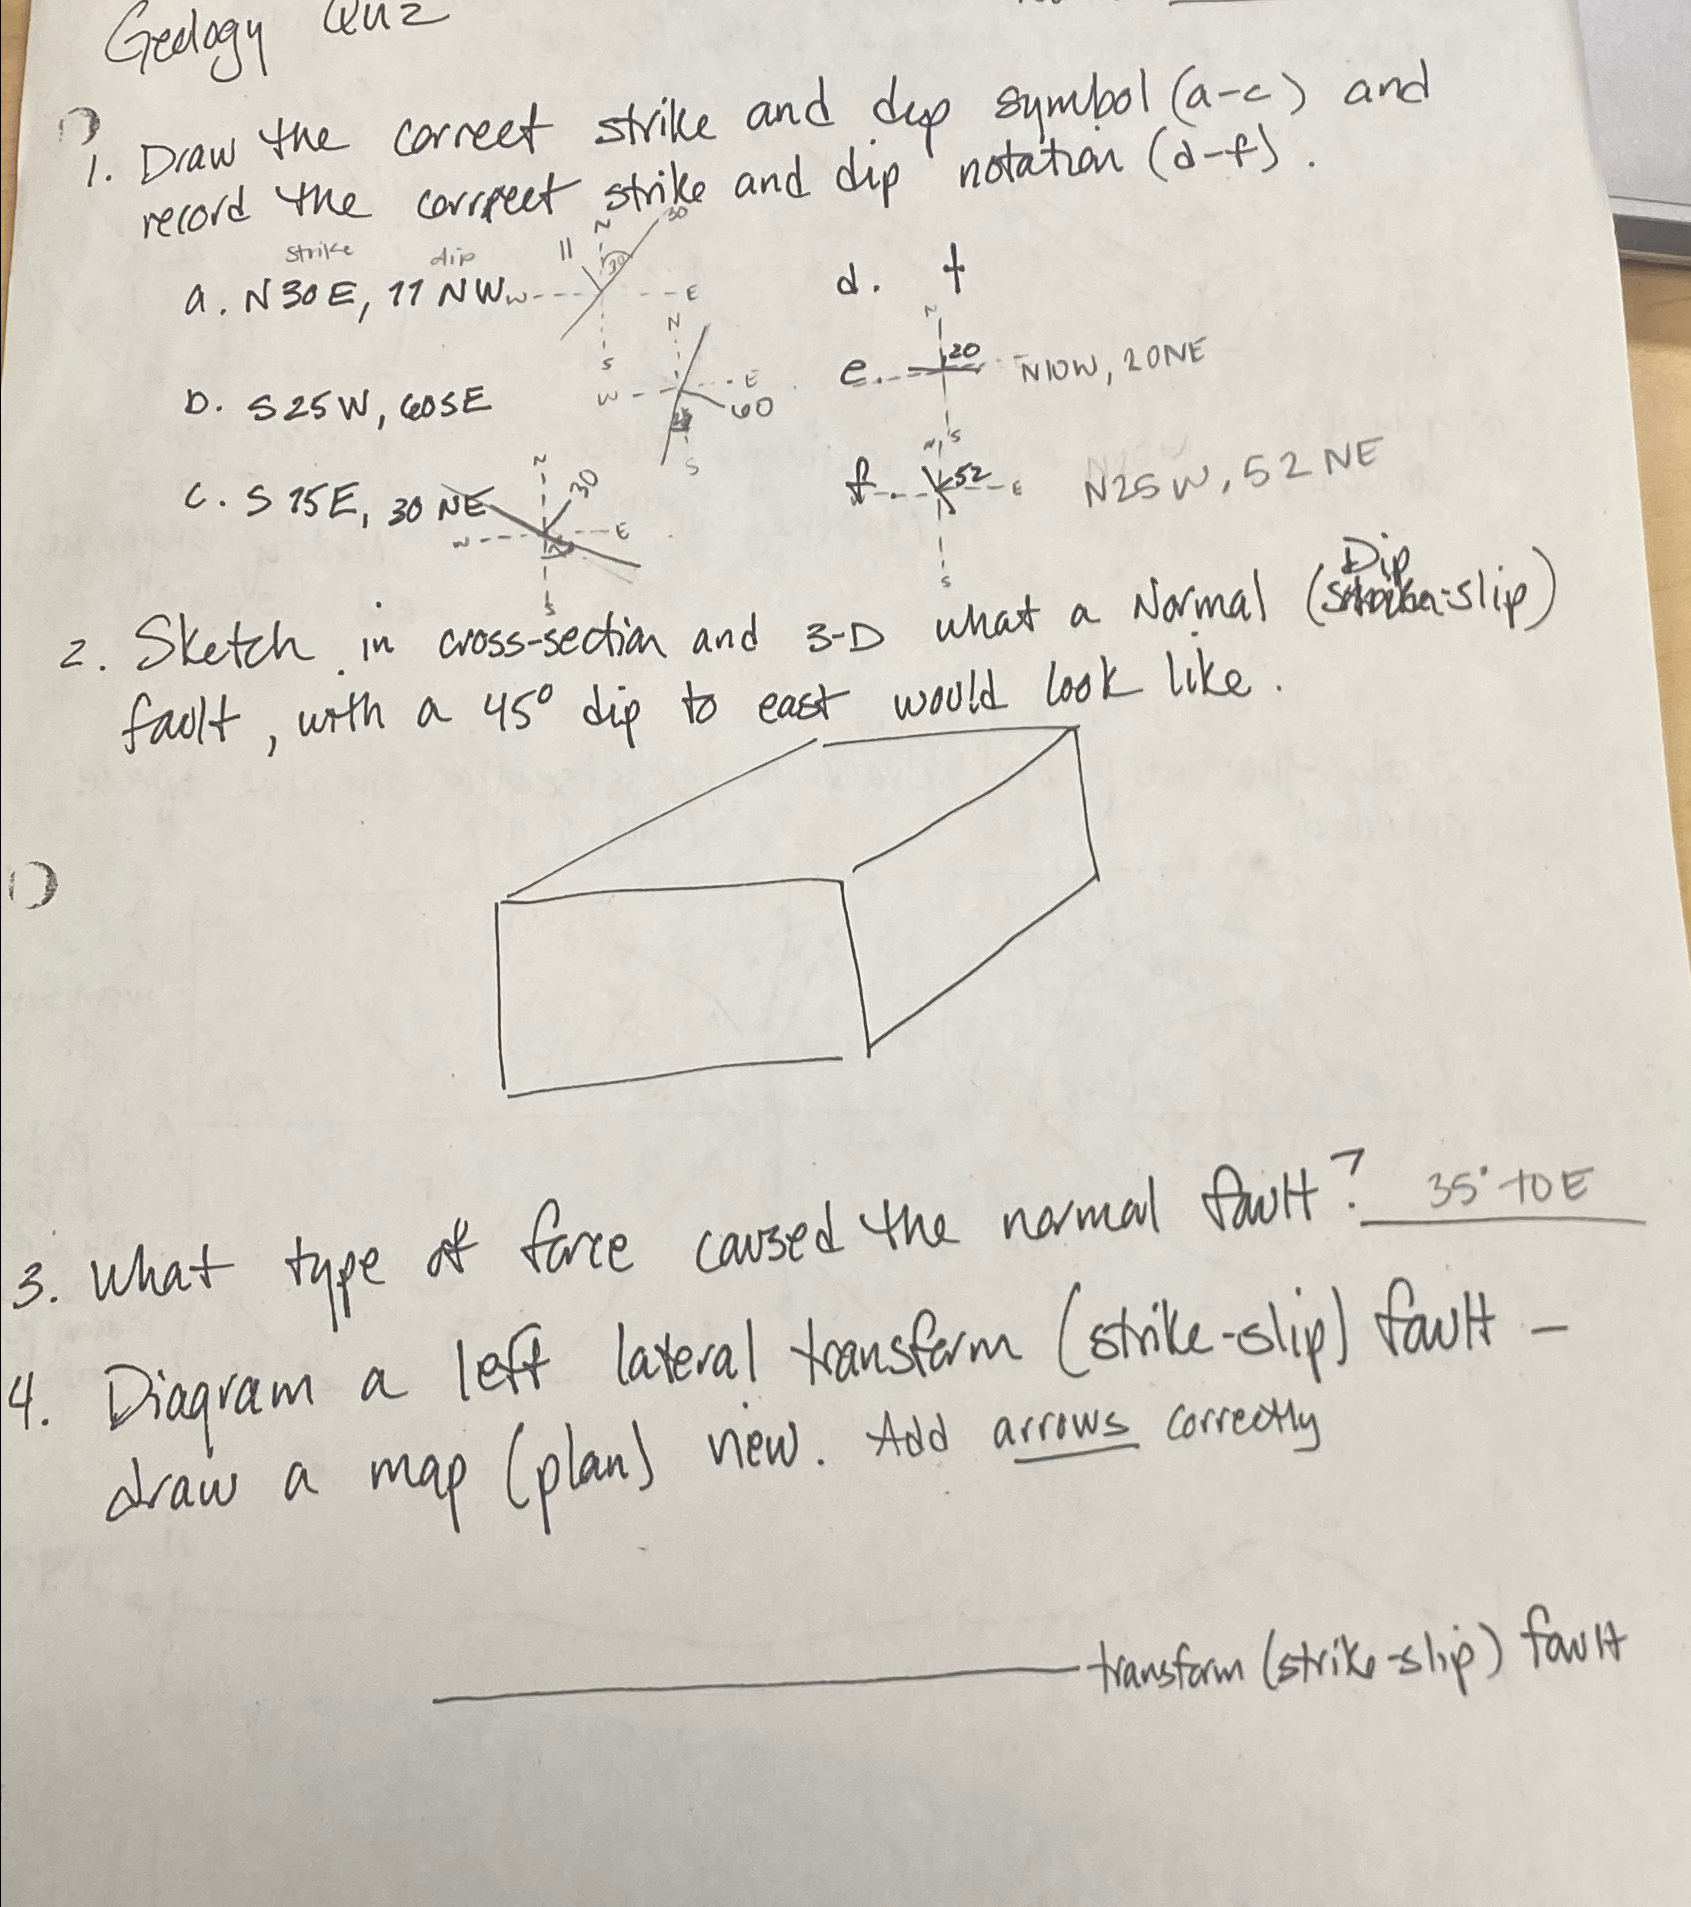 Geology Quz
1. Draw the correct strike and dip symbol (a-c) and
record the correct strike and dip notation (d-f).
strike dip
a. N30E, 11 NW
11 N 30 30 W E S
d.
b. S25W, 60SE
N W E 60 S
e. N 20 S N10W, 20NE
c. S 75E, 30 NE
N 30 W E S
f. N 52 E S N25W, 52 NE
2. Sketch in cross-section and 3-D what a Normal (Dip-slip)
fault, with a 45° dip to east would look like.
3. What type of force caused the normal fault? 35° to E
4. Diagram a left lateral transform (strike-slip) fault -
draw a map (plan) view. Add arrows correctly
transform (strike-slip) fault